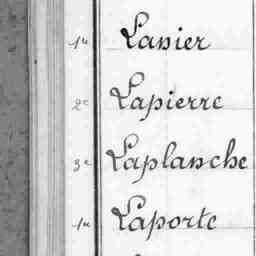 1er Lanier
2e Lapierre
3e Laplanche
1er Laporte